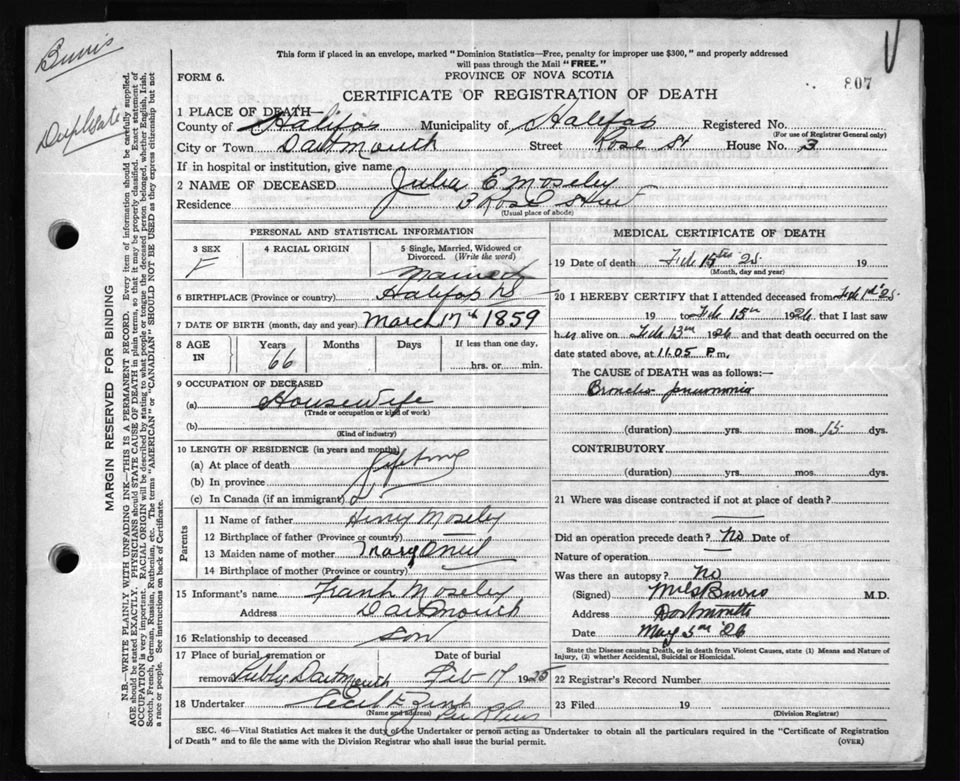 Burris
Duplicate
This form if placed in an envelope, marked "Dominion Statistics—Free, penalty for improper use $300," and properly addressed
will pass through the Mail "FREE."
FORM 6.
PROVINCE OF NOVA SCOTIA
807
CERTIFICATE OF REGISTRATION OF DEATH
1 PLACE OF DEATH—
County of Halifax Municipality of Halifax Registered No.
(For use of Registrar General only)
City or Town Dartmouth Street Rose St House No. 3
If in hospital or institution, give name
2 NAME OF DECEASED Julia E Moseley
Residence 3 Rose Street
(Usual place of abode)
PERSONAL AND STATISTICAL INFORMATION
3 SEX
F
4 RACIAL ORIGIN
5 Single, Married, Widowed or
Divorced. (Write the word)
Married
6 BIRTHPLACE (Province or country) Halifax NS
7 DATE OF BIRTH (month, day and year) March 17th 1859
8 AGE
IN
Years
66
Months
Days
If less than one day,
hrs. or min.
9 OCCUPATION OF DECEASED
(a) Housewife
(Trade or occupation or kind of work)
(b)
(Kind of industry)
10 LENGTH OF RESIDENCE (in years and months)
(a) At place of death Lifetime
(b) In province
(c) In Canada (if an immigrant)
Parents
11 Name of father Henry Moseley
12 Birthplace of father (Province or country)
13 Maiden name of mother Mary Oneil
14 Birthplace of mother (Province or country)
15 Informant's name Frank Moseley
Address Dartmouth
16 Relationship to deceased Son
17 Place of burial, cremation or
removal Dartmouth
Date of burial
Feb 17 1925
18 Undertaker Cecil E Zink
(Name and address)
MEDICAL CERTIFICATE OF DEATH
19 Date of death Feb 15th 25 19
(Month, day and year)
20 I HEREBY CERTIFY that I attended deceased from Feb 1st 25
19 to Feb 15th 1926 that I last saw
her alive on Feb 13th 1926 and that death occurred on the
date stated above, at 11.05 P.m,
The CAUSE of DEATH was as follows:—
Broncho pneumonia
(duration) yrs. mos. 15 dys.
CONTRIBUTORY
(duration) yrs. mos. dys.
21 Where was disease contracted if not at place of death?
Did an operation precede death? No Date of
Nature of operation
Was there an autopsy? No
(Signed) M D S Burris M.D.
Address Dartmouth
Date May 5th '26
State the Disease causing Death, or in death from Violent Causes, state (1) Means and Nature of
Injury, (2) whether Accidental, Suicidal or Homicidal.
22 Registrar's Record Number
23 Filed 19
(Division Registrar)
SEC. 46—Vital Statistics Act makes it the duty of the Undertaker or person acting as Undertaker to obtain all the particulars required in the "Certificate of Registration
of Death" and to file the same with the Division Registrar who shall issue the burial permit.
(OVER)
MARGIN RESERVED FOR BINDING
N.B.—WRITE PLAINLY WITH UNFADING INK—THIS IS A PERMANENT RECORD. Every item of information should be carefully supplied.
AGE should be stated EXACTLY. PHYSICIANS should STATE CAUSE OF DEATH in plain terms, so that it may be properly classified. Exact statement of
OCCUPATION is very important. RACIAL ORIGIN will be described by stating to what people or tongue the deceased person belonged, whether English, Irish,
Scotch, French, German, Russian, Ruthenian, etc. The terms "AMERICAN" or "CANADIAN" SHOULD NOT BE USED as they express citizenship but not
a race or people. See instructions on back of Certificate.